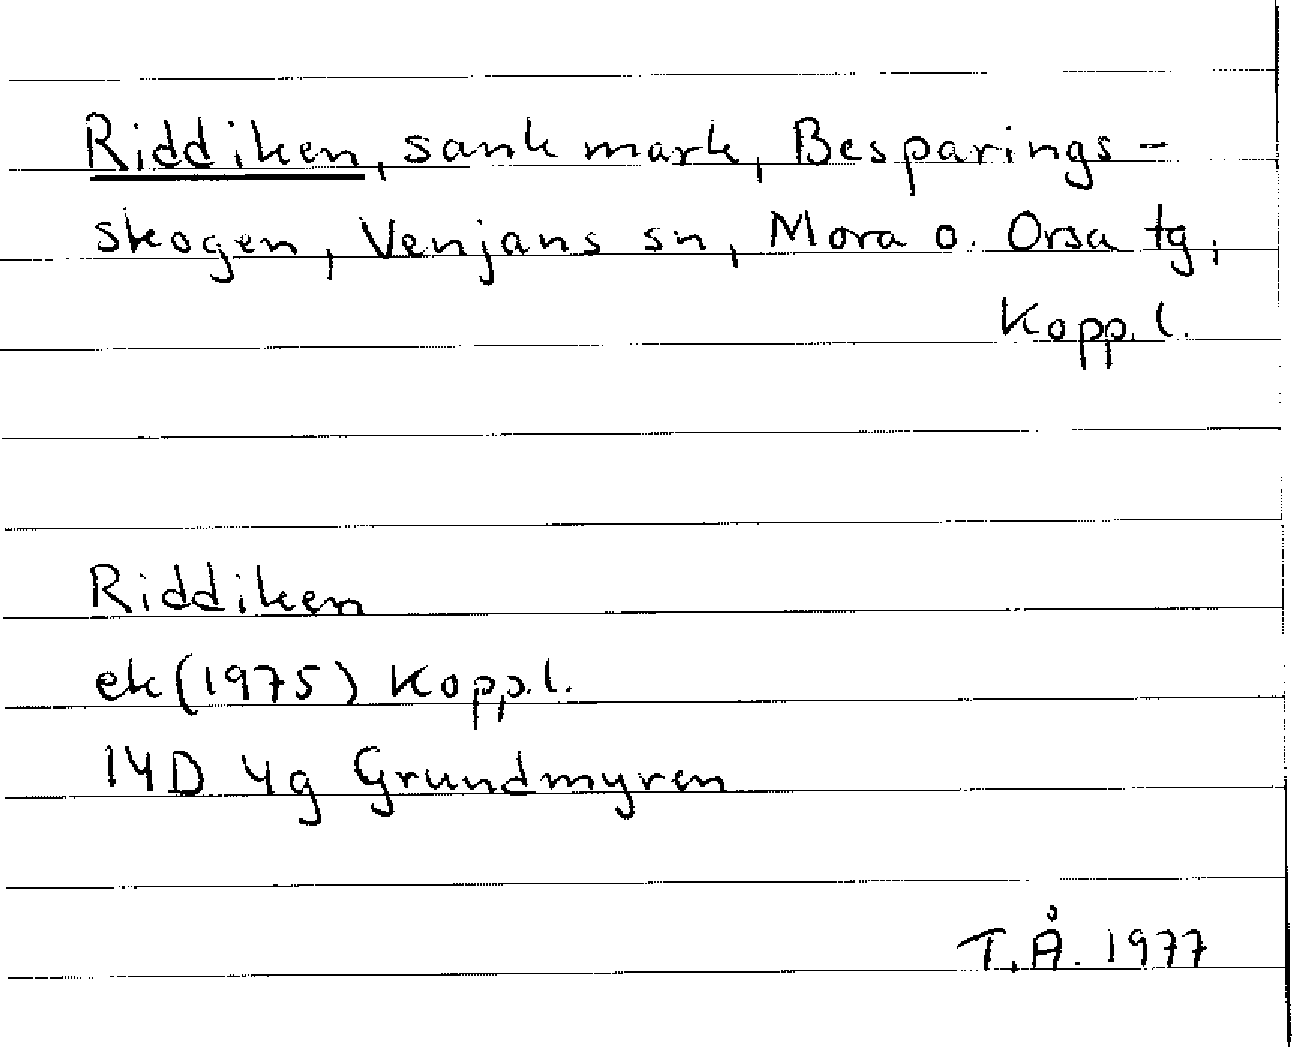 Riddiken, sank mark, Besparings-
skogen, Venjans sn, Mora o. Orsa tg,
Kopp. l.
Riddiken
ek (1975) Kopp. l.
14D 4g Grundmyren
T.Å. 1977